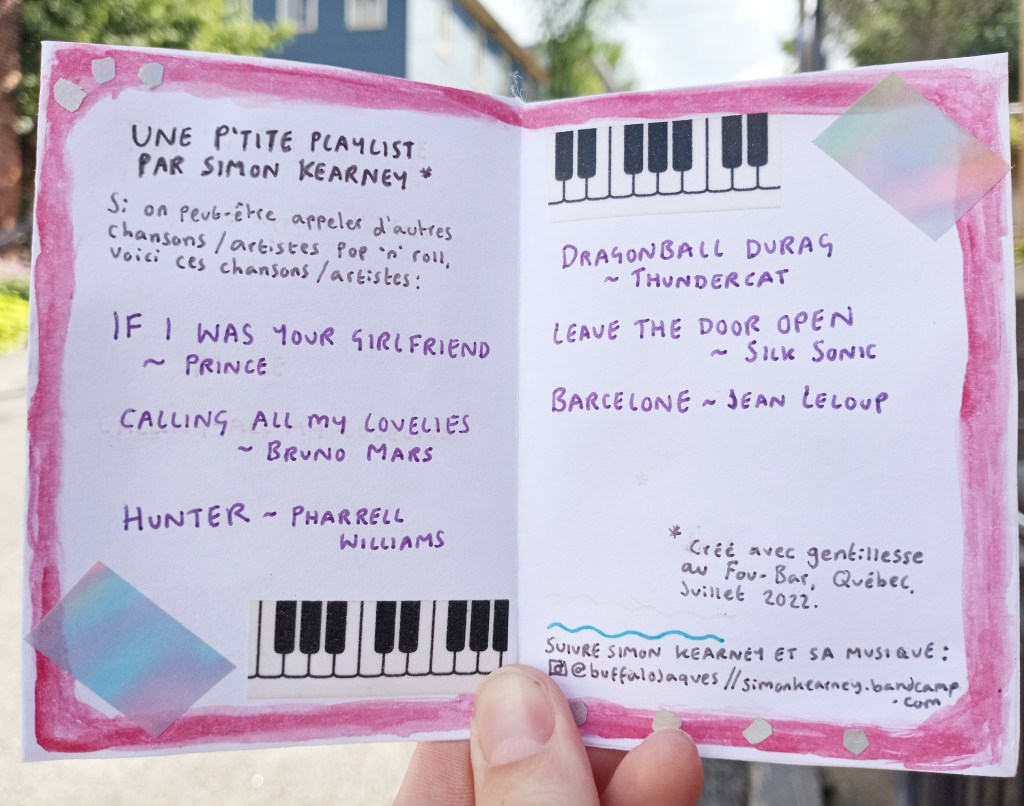 UNE P'TITE PLAYLIST
PAR SIMON KEARNEY *
Si on peut-être appeler d'autres
chansons/artistes pop 'n' roll,
voici ces chansons/artistes:
IF I WAS YOUR GIRLFRIEND
~ PRINCE
CALLING ALL MY LOVELIES
~ BRUNO MARS
HUNTER ~ PHARRELL
WILLIAMS
DRAGONBALL DURAG
~ THUNDERCAT
LEAVE THE DOOR OPEN
~ SILK SONIC
BARCELONE ~ JEAN LELOUP
* Créé avec gentillesse
au Fou-Bar, Québec,
Juillet 2022.
SUIVRE SIMON KEARNEY ET SA MUSIQUE:
@buffaloJaques // simonkearney.bandcamp
.com